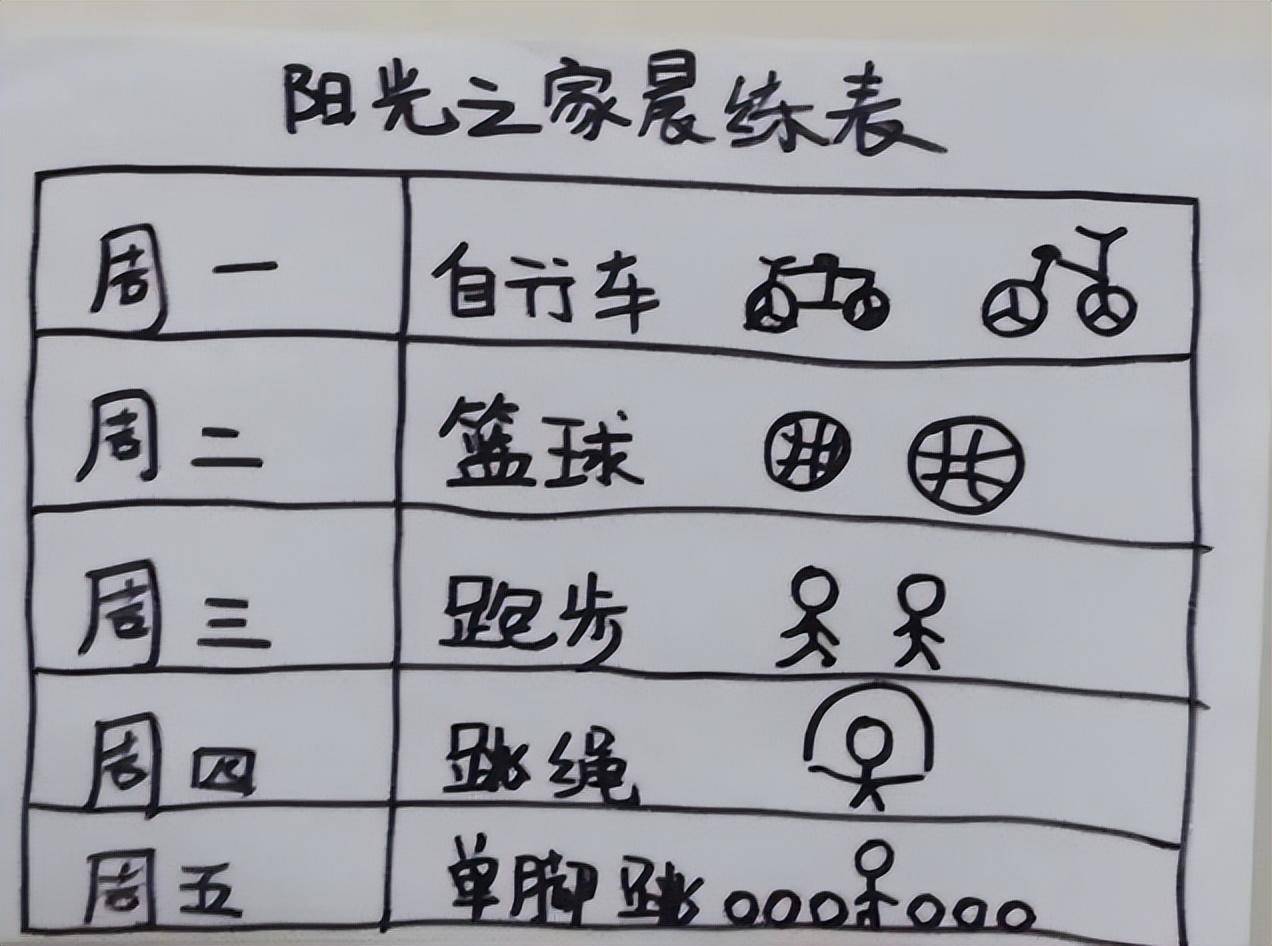 阳光之家晨练表
周一 自行车
周二 篮球
周三 跑步
周四 跳绳
周五 单脚跳